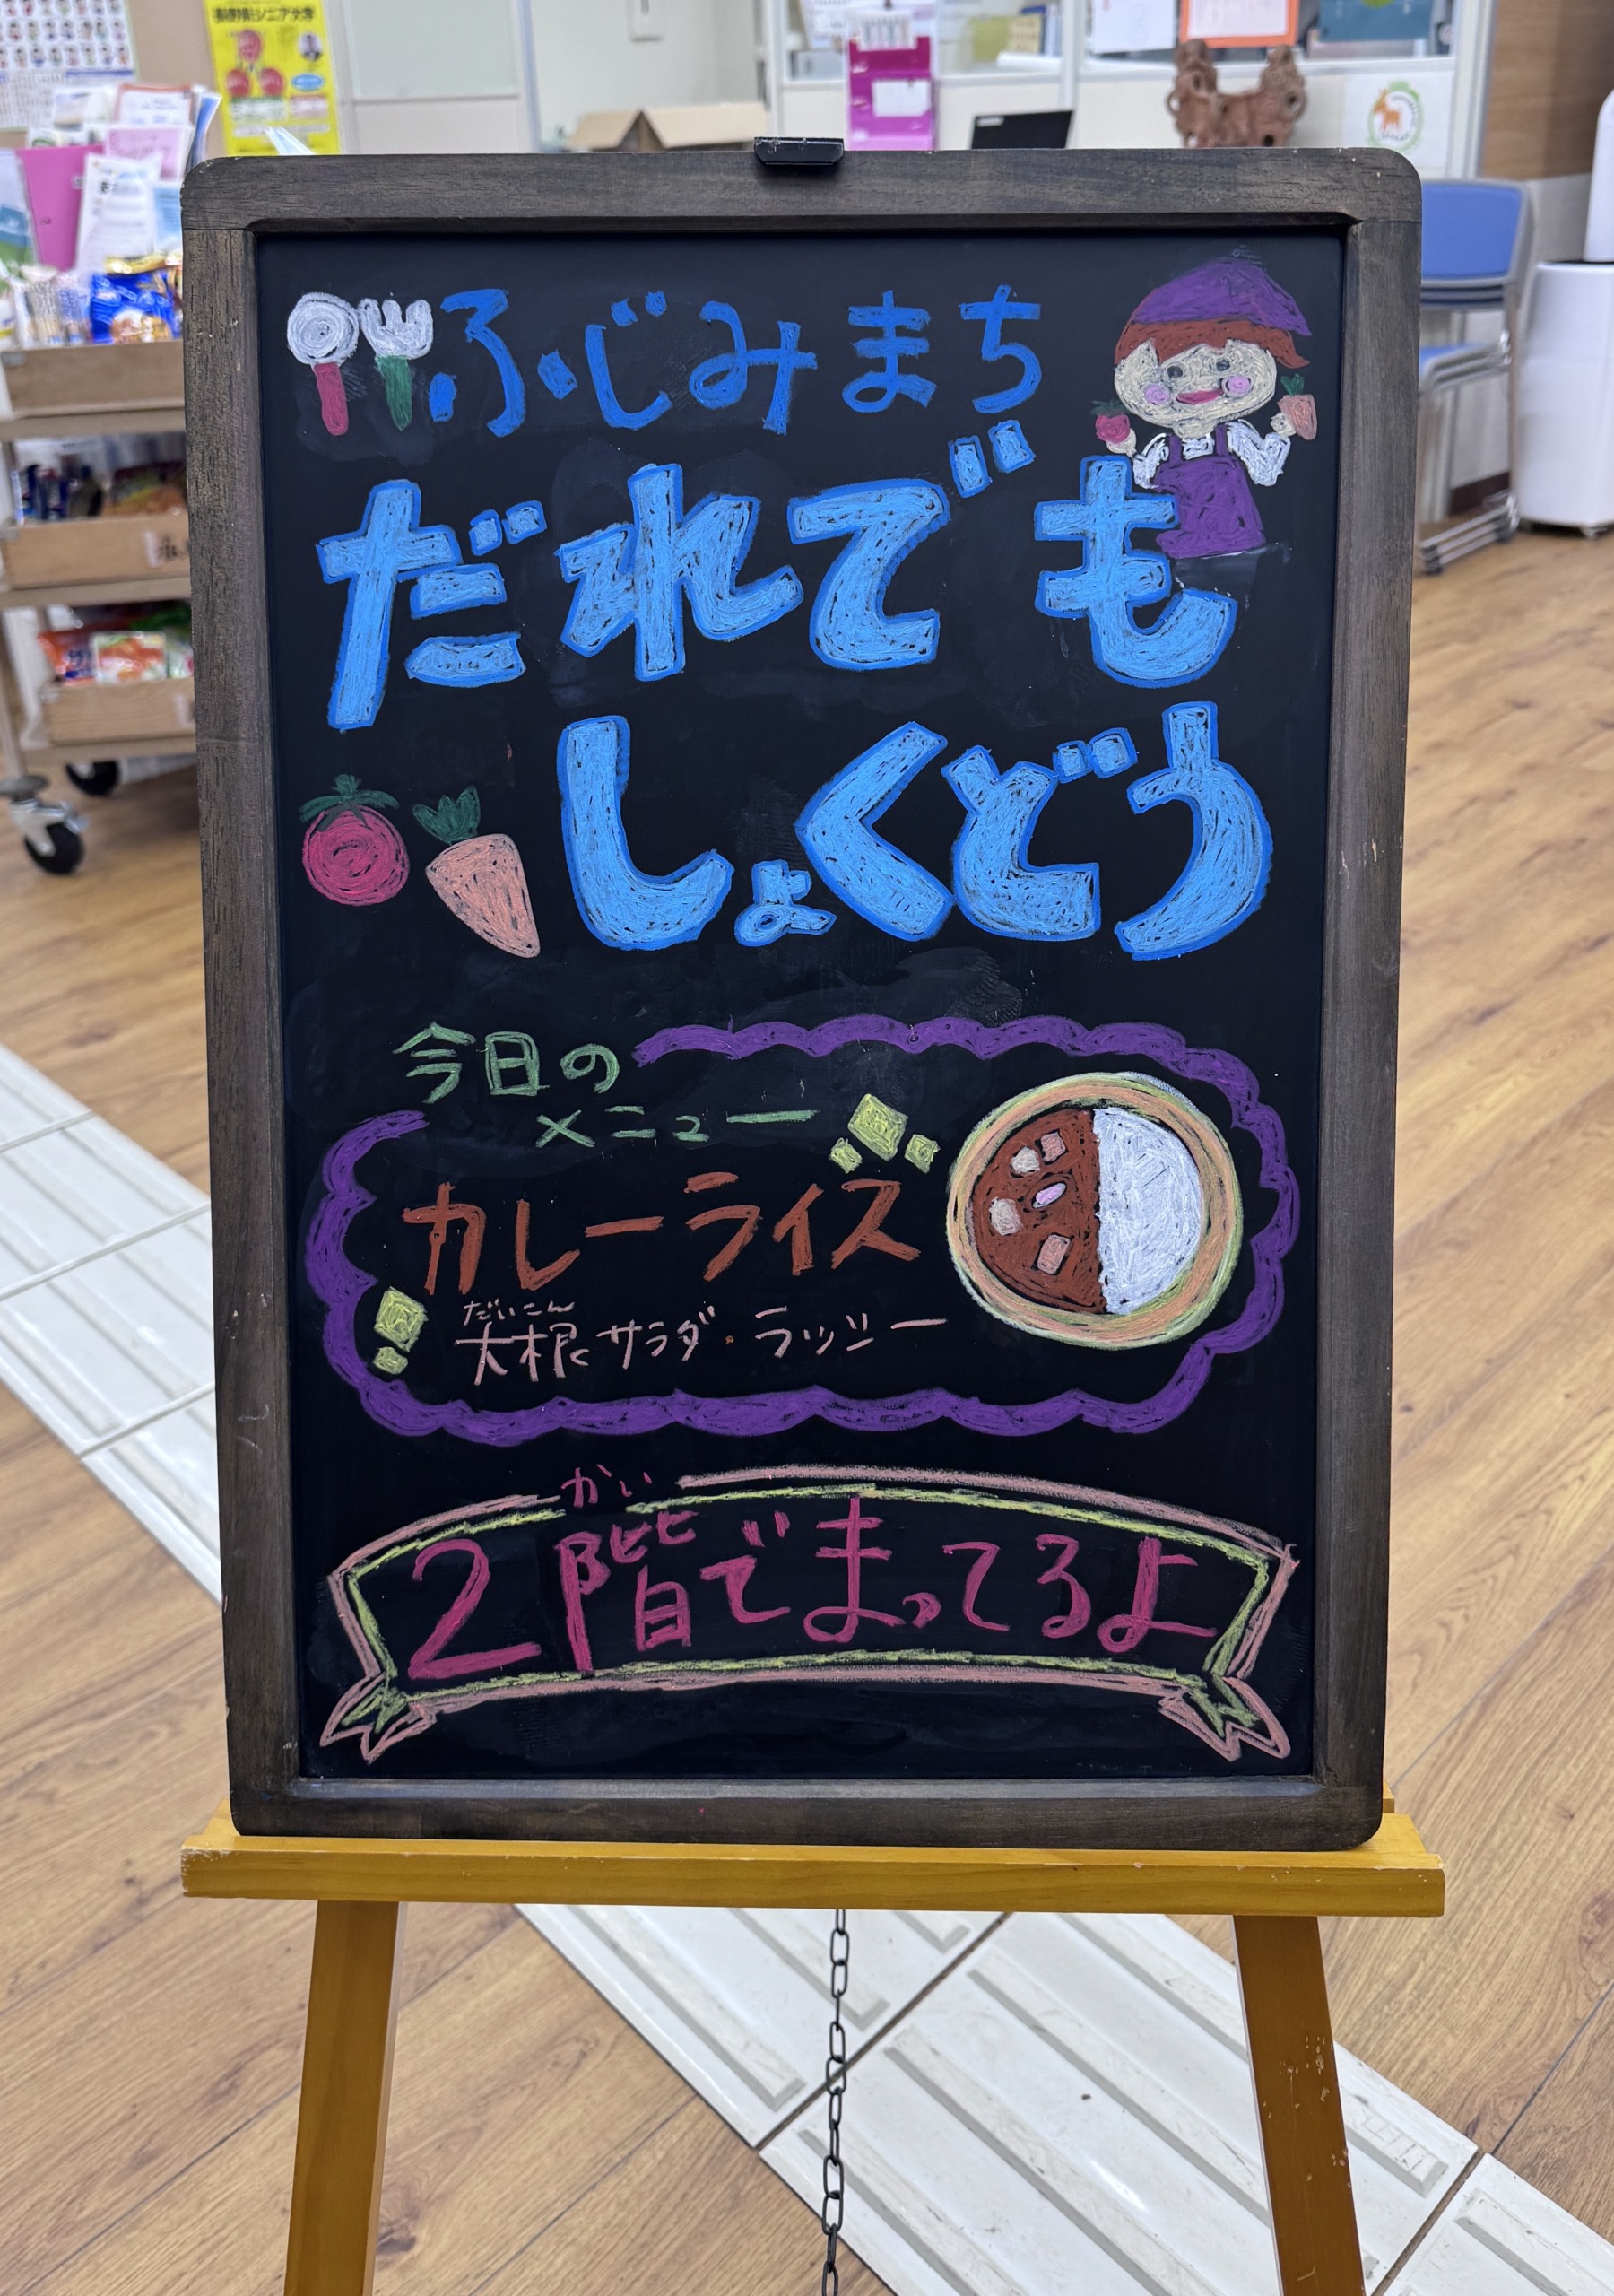 ふじみまち
だれでも
しょくどう
今日の
メニュー
カレーライス
だいこん
大根サラダ・ラッシー
かい
2階でまってるよ